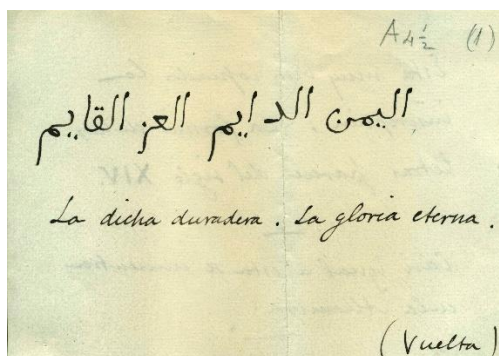 A 4 ½ (1)
اليمن الدايم العز القايم
La dicha duradera. La gloria eterna.
(Vuelta)